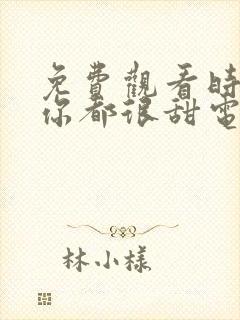 免費觀看時
你都很甜電
林小樣